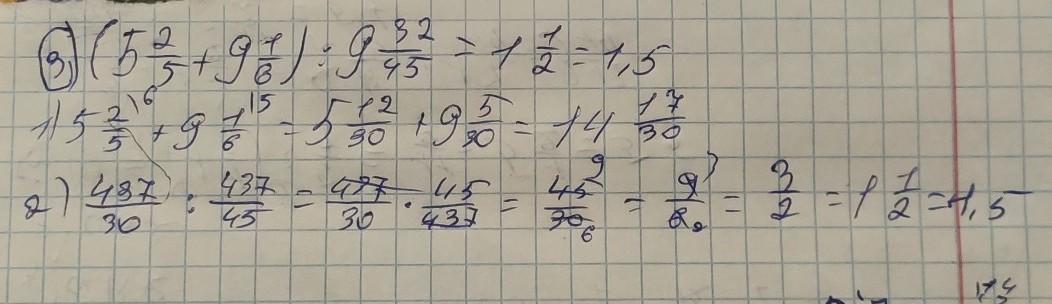 3) (5 2/5 + 9 1/6) : 9 32/45 = 1 1/2 = 1,5
1) 5 2/5 \6 + 9 1/6 \5 = 5 12/30 + 9 5/30 = 14 17/30
2) 437/30 : 437/45 = 437/30 · 45/437 = 45 9/30 6 = 9 3/6 2 = 3/2 = 1 1/2 = 1,5